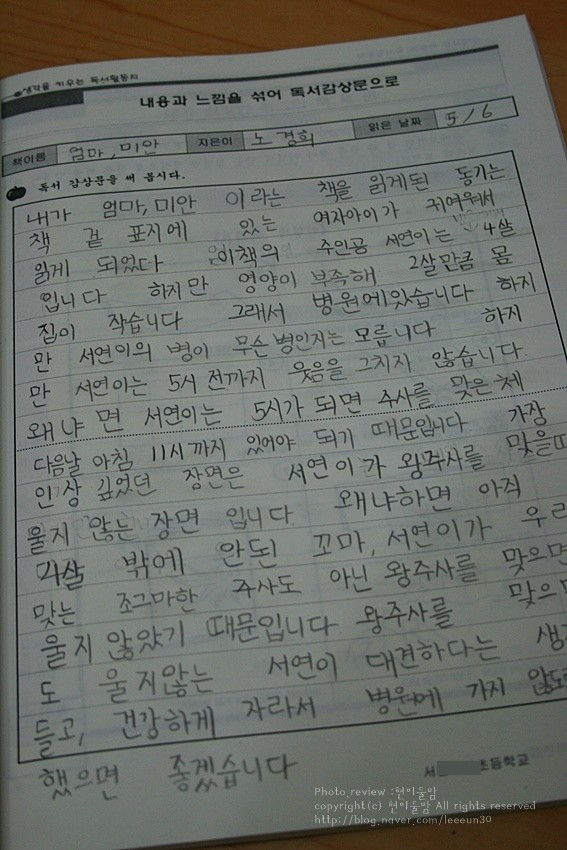 생각을 키우는 독서활동지
내용과 느낌을 섞어 독서감상문으로
책이름 엄마, 미안 지은이 노경희 읽은 날짜 5/6
독서 감상문을 써 봅시다.
내가 엄마,미안 이라는 책을 읽게된 동기는
책 겉 표지에 있는 여자아이가 귀여워서
읽게 되었다 이책의 주인공 서연이는 4살
입니다 하지만 영양이 부족해 2살만큼 몸
집이 작습니다 그래서 병원에있습니다 하지
만 서연이의 병이 무슨 병인지는 모릅니다 하지
만 서연이는 5시 전까지 웃음을 그치지 않습니다.
왜냐 면 서연이는 5시가 되면 주사를 맞은 체
다음날 아침 11시까지 있어야 되기 때문입니다. 가장
인상 깊었던 장면은 서연이가 왕주사를 맞을때
울지 않는 장면 입니다. 왜냐하면 아직
4살 밖에 안된 꼬마, 서연이가 우리
맞는 조그마한 주사도 아닌 왕주사를 맞으면
울지 않았기 때문입니다. 왕주사를 맞으
도 울지않는 서연이 대견하다는 생
들고, 건강하게 자라서 병원에 가지 않도
했으면 좋겠습니다
초등학교
Photo,review :현이둘맘
copyright(c) 현이둘맘 All rights reserved
http://blog.naver.com/leeeun30